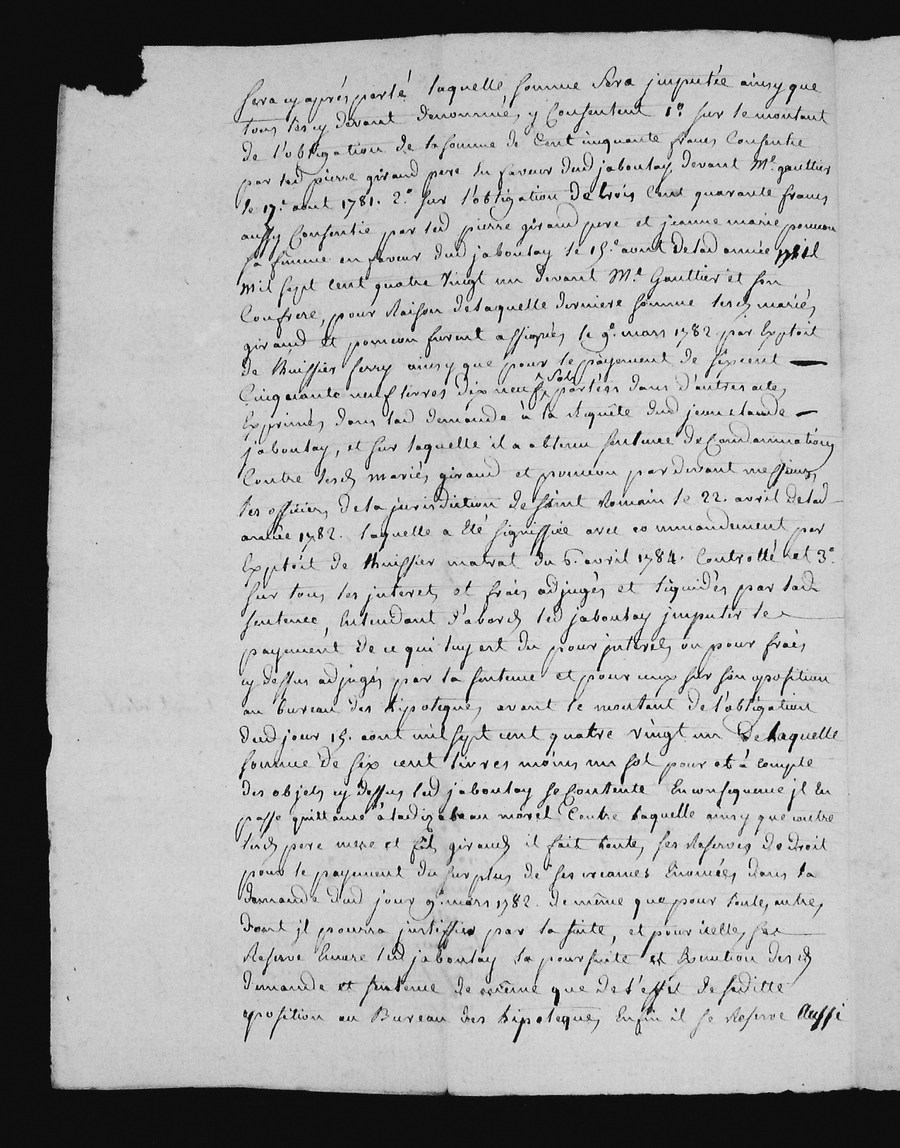 sera cy après parlé laquelle somme sera jmputée ainsy que
tous lesd cy devant denommés, y Consentent 1º sur le montant
de l'obligation de la somme de Cent cinquante francs Consentie
par led pierre giraud pere en faveur dud jaboulay, devant Me gaultier
le 17e aout 1781. 2º sur l'obligation de trois Cent quarante francs
aussy Consentie par led pierre giraud pere et jeanne marie poncon
sa femme en faveur dud jaboulay le 15e aout de lad année
mil sept cent quatre vingt un devant Me Gaultier et son
Confrere, pour Raison de laquelle derniere somme lesd mariés
giraud et poncon furent assignés le 9e mars 1782 par Exploit
de l'huissier ferry ainsy que pour le payement de six cent —
Cinquante neuf livres dix neuf sols portées dans d'autres actes
Exprimés dans lad demande a la Requête dud jean claude —
jaboulay, et sur laquelle il a obtenu sentence de Condamnation
Contre lesd mariés giraud et poncon par devant messieurs
les officiers de la jurisdiction de saint Romain le 22. avril de lad
année 1782. laquelle a été signiffiée avec commandement par
Exploit de l'huissier marat du 6. avril 1784. Controllé et 3º
sur tous les jnterets et frais adjugés et liquidés par lad
sentence, Entendant d'abord led jaboulay jmputer le
payement de ce qui luy est du pour jnterets ou pour frais
cy dessus adjugés par la sentence et pour ceux sur son oposition
au bureau des hipoteques avant le montant de l'obligation
dud jour 15. aout mil sept cent quatre vingt un De laquelle
somme de six cent livres moins un sol pour et à compte
des objets cy dessus led jaboulay se Contente En consequence jl En
passe quittance à lad izabeau morel Contre laquelle ainsy que contre
lesd pere mere et fils giraud il fait toutes ses Reserves de droit
pour le payement du surplus de ses creances Enoncées dans la
demande dud jour 9e mars 1782. de même que pour toutes autres
dont jl pourra justiffier par la suite, et pour icelles se
Reserve Encore led jaboulay la poursuite et Execution desd
demande et sentence de même que de l'effet de saditte
oposition au Bureau des hipoteques Enfin il se Reserve Aussi